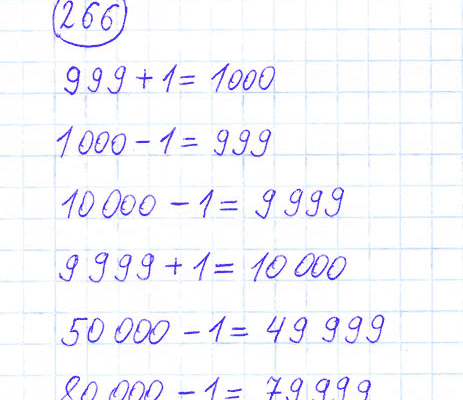 266
999 + 1 = 1000
1000 - 1 = 999
10 000 - 1 = 9 999
9 999 + 1 = 10 000
50 000 - 1 = 49 999
80 000 - 1 = 79 999